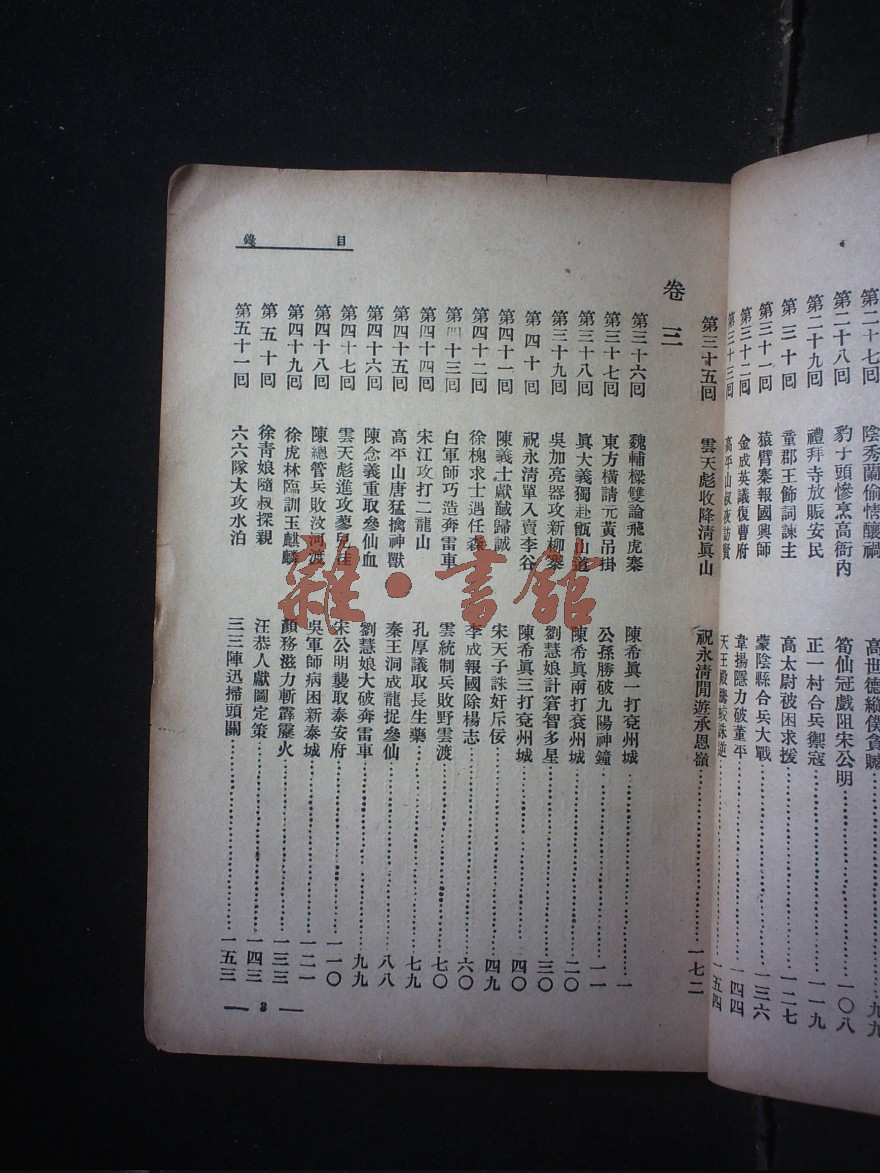 第二十七回 陰秀蘭偷情釀禍 高世德縱僕貪贓 九九
第二十八回 豹子頭慘烹高衙內 筍仙冠戲阻宋公明 一〇八
第二十九回 禮拜寺放賑安民 正一村合兵禦寇 一一九
第三十回 童郡王飾詞諫主 高太尉被困求援 一二七
第三十一回 猿臂寨報國興師 蒙陰縣合兵大戰 一三六
第三十二回 金成英議復曹府 韋揚隱力破董平 一四四
第三十三回 高平山叔夜訪賢 天王殿騰蛟誅逆 一五四
第三十五回 雲天彪收降清眞山 祝永清閒遊承恩嶺 一七二
目錄
卷三
第三十六回 魏輔樑雙論飛虎寨 陳希眞一打兗州城 一
第三十七回 東方橫請元黃吊掛 公孫勝破九陽神鐘 一一
第三十八回 眞大義獨赴甑山道 陳希眞兩打兗州城 二〇
第三十九回 吳加亮器攻新柳寨 劉慧娘計窘智多星 三〇
第四十回 祝永清單入賣李谷 陳希眞三打兗州城 四〇
第四十一回 陳義士獻馘歸誠 宋天子誅奸斥佞 四九
第四十二回 徐槐求士遇任森 李成報國除楊志 六〇
第四十三回 白軍師巧造奔雷車 雲統制兵敗野雲渡 七〇
第四十四回 宋江攻打二龍山 孔厚議取長生藥 七九
第四十五回 高平山唐猛擒神獸 秦王洞成龍捉參仙 八八
第四十六回 陳念義重取參仙血 劉慧娘大破奔雷車 九九
第四十七回 雲天彪進攻蓼兒洼 宋公明襲取泰安府 一一〇
第四十八回 陳總管兵敗汶河渡 吳軍師病困新泰城 一二一
第四十九回 徐虎林臨訓玉麒麟 顏務滋力斬霹靂火 一三三
第五十回 徐青娘隨叔探親 汪恭人獻圖定策 一四三
第五十一回 六六隊大攻水泊 三三陣迅掃頭關 一五三
3
雜·書館